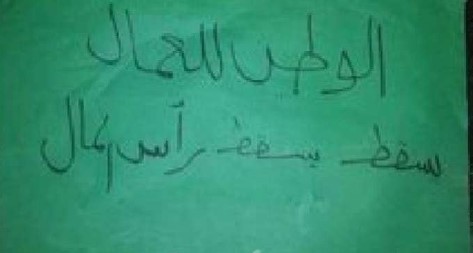 الوطن للعمال
سقط يسقط رأس مال